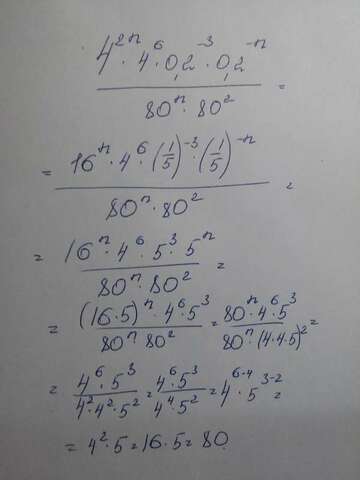 4^{2n} · 4^6 · 0,2^{-3} · 0,2^{-n}
80^n · 80^2 =
= 16^n · 4^6 · (1/5)^{-3} · (1/5)^{-n}
80^n · 80^2 =
= 16^n · 4^6 · 5^3 · 5^n
80^n · 80^2 =
= (16·5)^n · 4^6 · 5^3 / 80^n · 80^2 = 80^n · 4^6 · 5^3 / 80^n · (4·4·5)^2 =
= 4^6 · 5^3 / 4^2 · 4^2 · 5^2 = 4^6 · 5^3 / 4^4 · 5^2 = 4^{6-4} · 5^{3-2} =
= 4^2 · 5 = 16 · 5 = 80